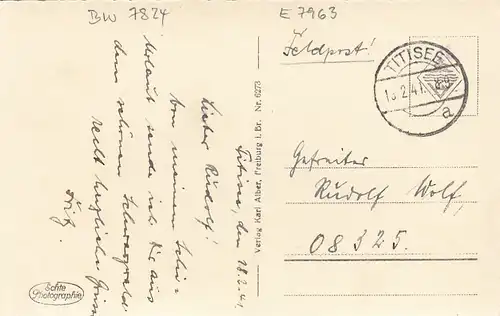 BW 7824
E 7963
Feldpost!
TITISEE
18.2.41.
a
Titisee, den 18.2.41
Lieber Rudolf!
Von meinem Schi-
Urlaub sende ich Dir aus
dem schönen Schwarzwald
recht herzliche Grüsse
Verlag Karl Alber, Freiburg i. Br. Nr. 6273
Gefreiter
Rudolf Wolf,
08325.
Echte
Photographie